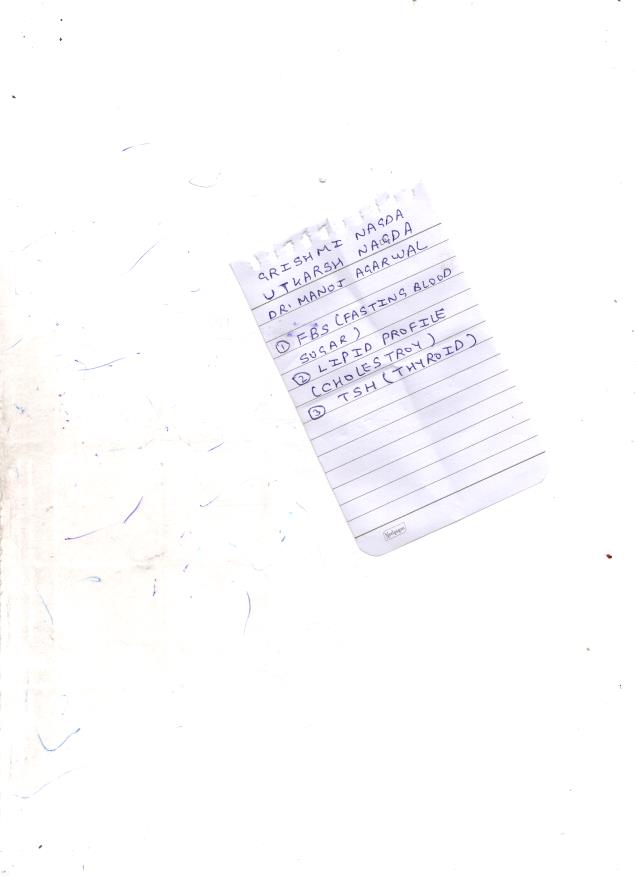 GRISHMI NAGDA
UTKARSH NAGDA
DR. MANOJ AGARWAL
① FBS (FASTING BLOOD
SUGAR)
② LIPID PROFILE
(CHOLESTROY)
③ TSH (THYROID)